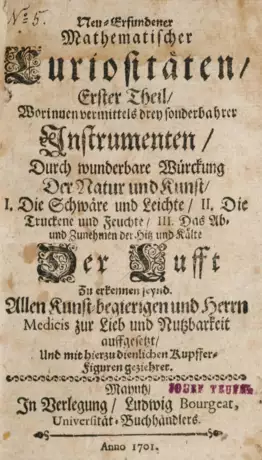 No 5.
Neu-Erfundener
Mathematischer
Curiositäten/
Erster Theil/
Worinnen vermittels drey sonderbahrer
Instrumenten/
Durch wunderbare Würckung
Der Natur und Kunst/
I. Die Schwäre und Leichte/ II. Die
Truckene und Feuchte/ III. Das Ab-
und Zunehmen der Hitz und Kälte
Der Lufft
Zu erkennen seynd.
Allen Kunst-begierigen und Herrn
Medicis zur Lieb und Nutzbarkeit
auffgesetzt/
Und mit hierzu dienlichen Kupffer-
Figuren gezieret.
Mayntz
JOSEF TEUFEL
In Verlegung/ Ludwig Bourgeat,
Universität-Buchhändlers.
Anno 1701.